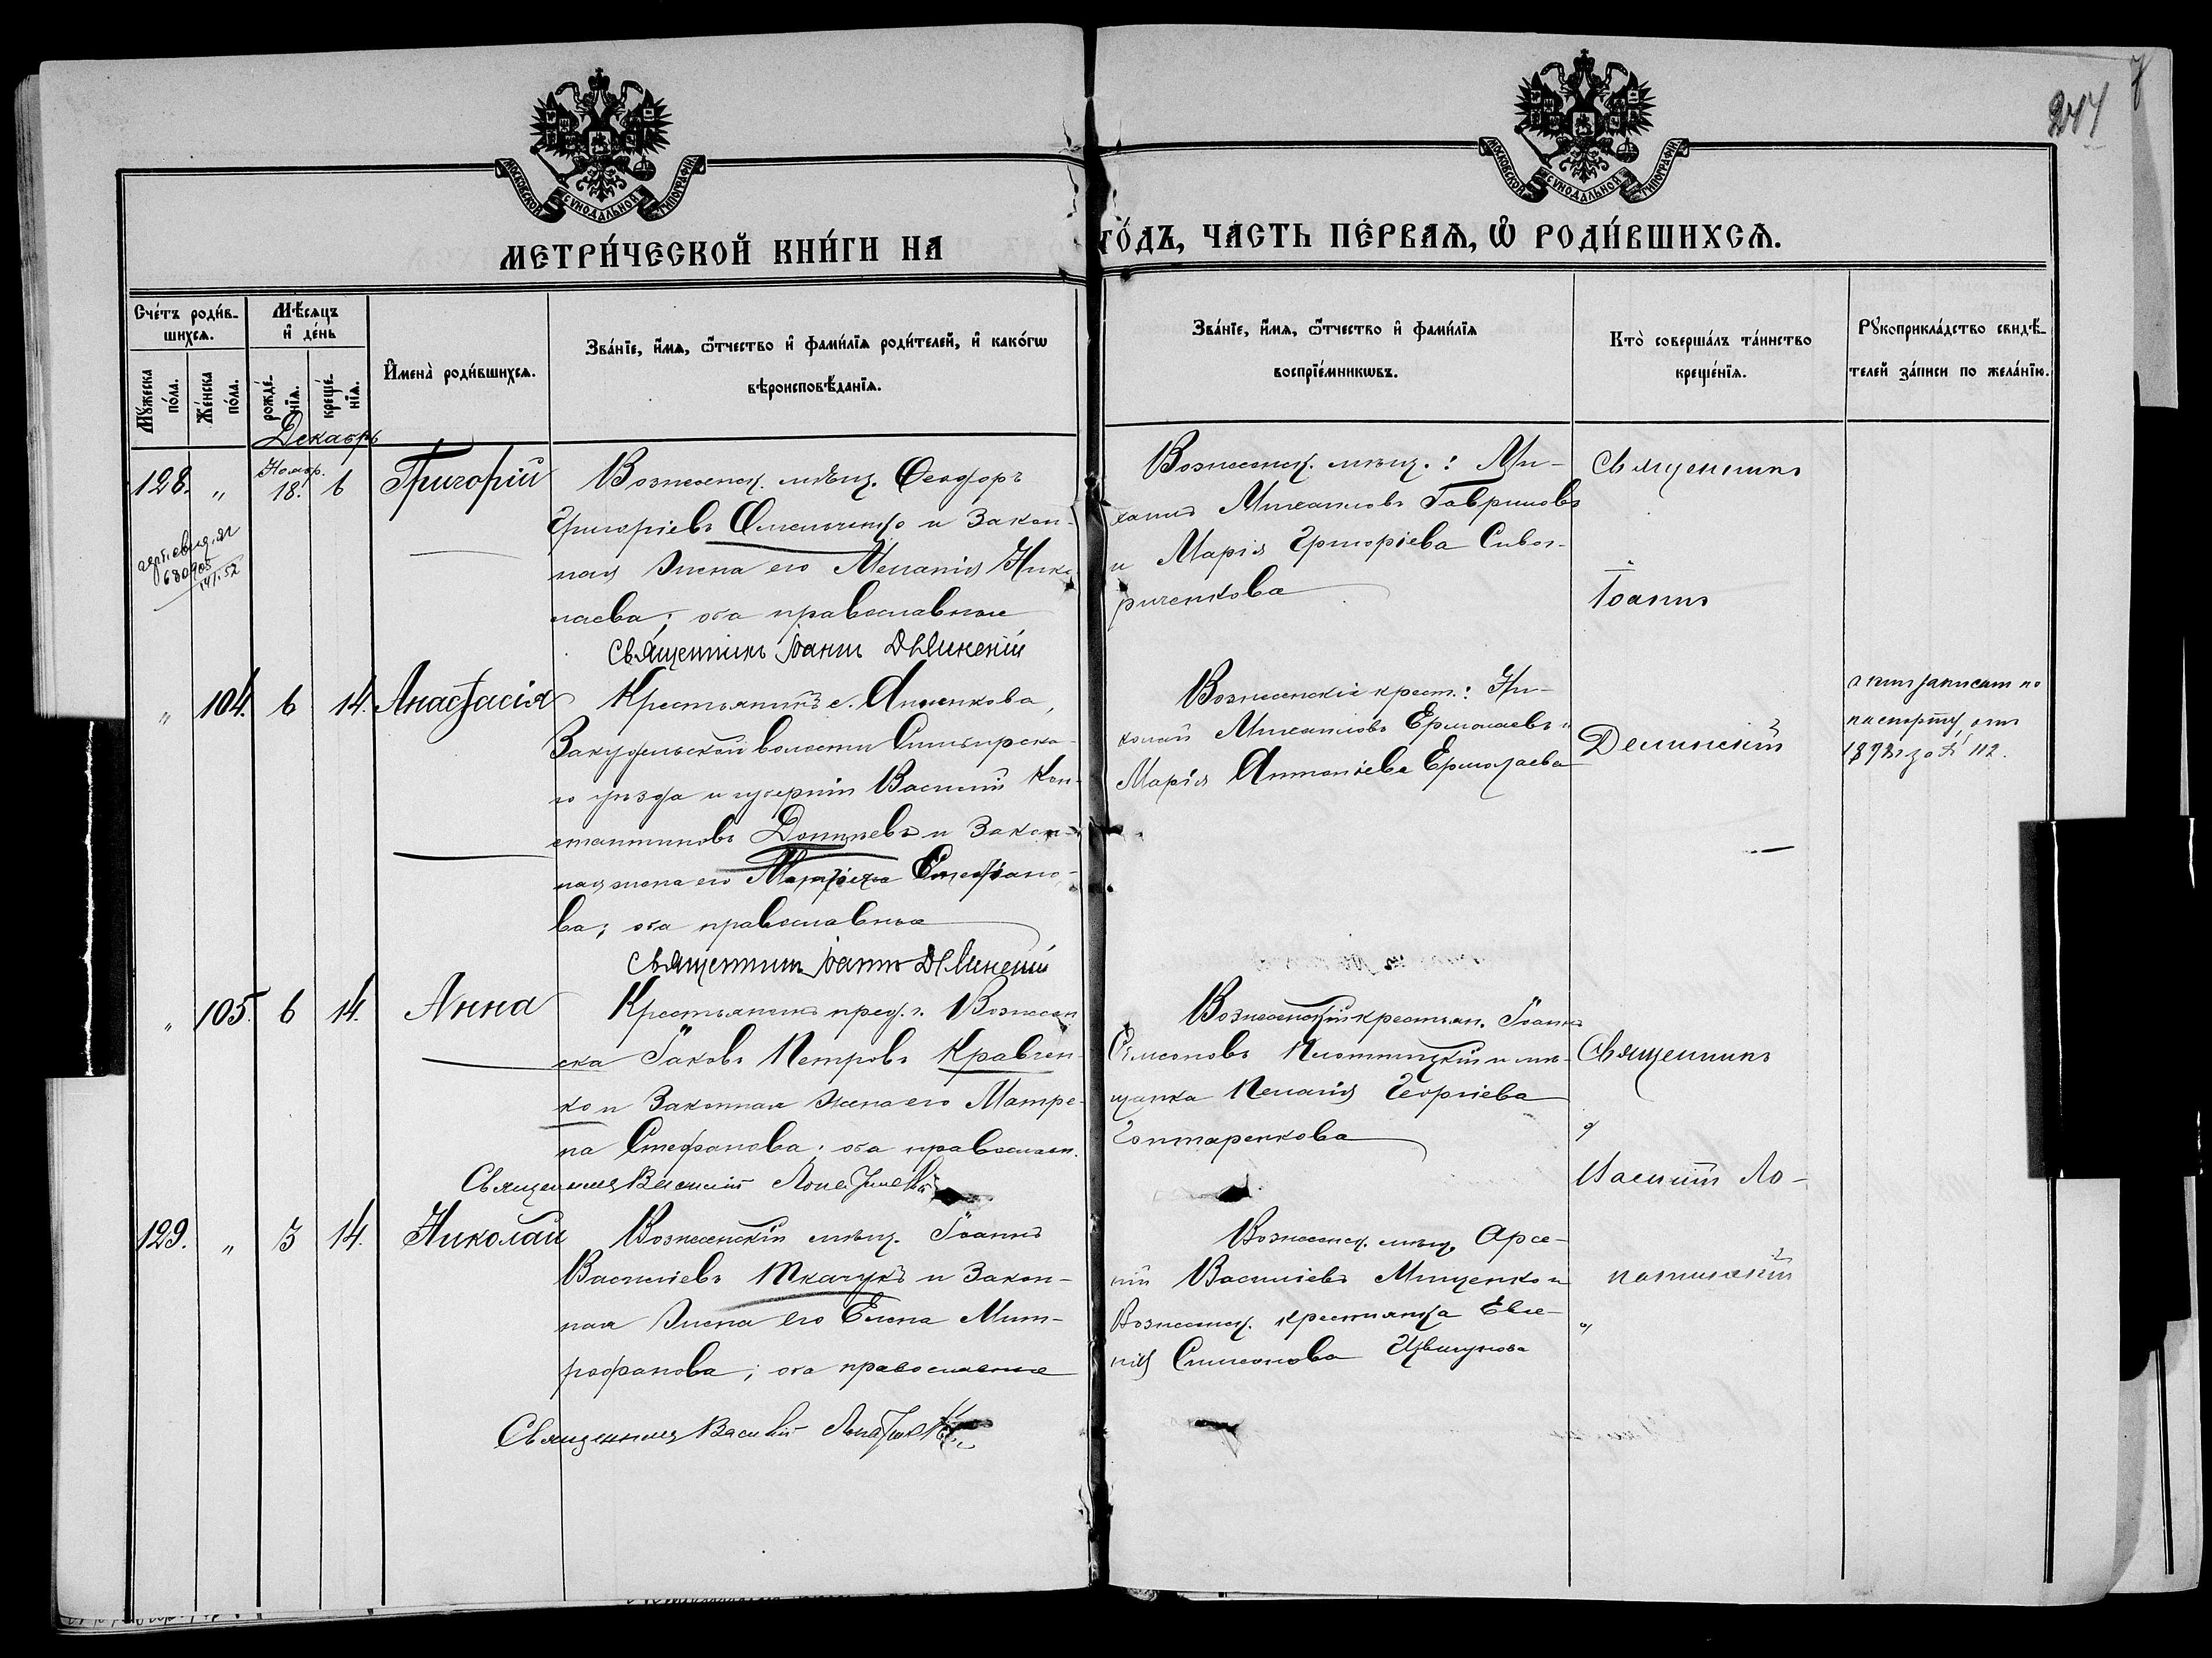 244
МОСКОВСКОЙ СѴНОДАЛЬНОЙ ТИПОГРАФІИ
МОСКОВСКОЙ СѴНОДАЛЬНОЙ ТИПОГРАФІИ
МЕТРИ́ЧЕСКОЙ КНИ́ГИ НА
ГО́ДЪ, ЧАСТЬ ПЕ́РВАѦ, Ѡ҆ РОДИ́ВШИХСѦ.
Сче́тъ роди́в-
шихсѧ.
Мꙋ́жеска по́ла.
Же́нска по́ла.
Мѣ́сѧцъ
и҆ де́нь
рожде́-
нїѧ.
креще́-
нїѧ.
И҆мена̀ роди́вшихсѧ.
Зва́нїе, и҆́мѧ, ѻ҆́тчество и҆ фами́лїѧ роди́телей, и҆ како́гѡ
вѣроисповѣ́данїѧ.
Зва́нїе, и҆́мѧ, ѻ҆́тчество и҆ фами́лїѧ
воспрїе́мникѡвъ.
Кто̀ соверша́лъ та́инство
креще́нїѧ.
Рꙋкоприкла́дство свидѣ́-
телей за́писи по жела́нїю.
Декабрь
128. „ Ноябр. 18. 6 Григорій
Вознесенск. мѣщ. Ѳеодоръ
Григоріевъ Омельченко и закон-
ная жена его Меланія Нико-
лаева; оба православные
Священникъ Іоаннъ Делинскій
Вознесенск. мѣщ.: Ми-
хаилъ Михаиловъ Гавриловъ
и Марія Григоріева Сивог-
риченкова
Священникъ
Іоаннъ
Делинскій
680905
„ 104. 6 14. Анастасія
Крестьянинъ с. Анненкова,
волости Симбирска-
го уѣзда и губерніи Василій Кон-
стантиновъ и закон-
ная жена его Стефано-
ва; оба православные
Священникъ Іоаннъ Делинскій
Вознесенскіе крест.: Ни-
колай Михаиловъ Ермолаевъ и
Марія Антоніева Ермолаева
записанъ по
паспорту отъ
за № 112.
„ 105. 6 14. Анна
Крестьянинъ пред. г. Вознесен
ска Іаковъ Петровъ Кравчен-
ко и законная жена его Матре-
на Стефанова; оба православн.
Священникъ Василій Лопатинскій
Вознесенскій крестьян. Іоаннъ
Симеоновъ Плотницкій и мѣ-
щанка Пелагія Георгіева
Гонтаренкова
Священникъ
Василій Ло-
патинскій
129. „ 3 14. Николай
Вознесенскій мѣщ. Іоаннъ
Василіевъ Ткачукъ и закон-
ная жена его Елена Мит-
рофанова; оба православные
Священникъ Василій Лопатинскій
Вознесенск. мѣщ. Арсе-
ній Василіевъ Мищенко и
Вознесенск. крестьянка Евге-
нія Симеонова
„